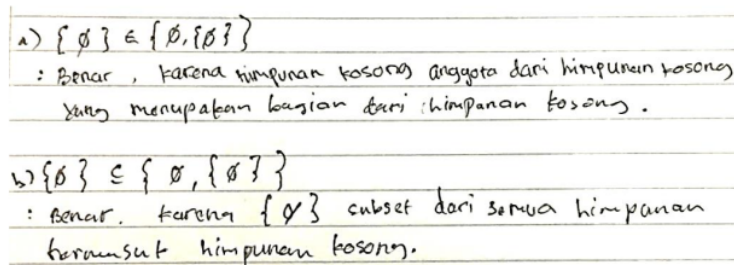 a) { ∅ } ∈ { ∅, {∅} }
: Benar, karena himpunan kosong anggota dari himpunan kosong
yang merupakan bagian dari himpanan kosong.
b) {∅} ⊆ { ∅, {∅} }
: Benar. karena {∅} subset dari semua himpanan
termasuk himpunan kosong.